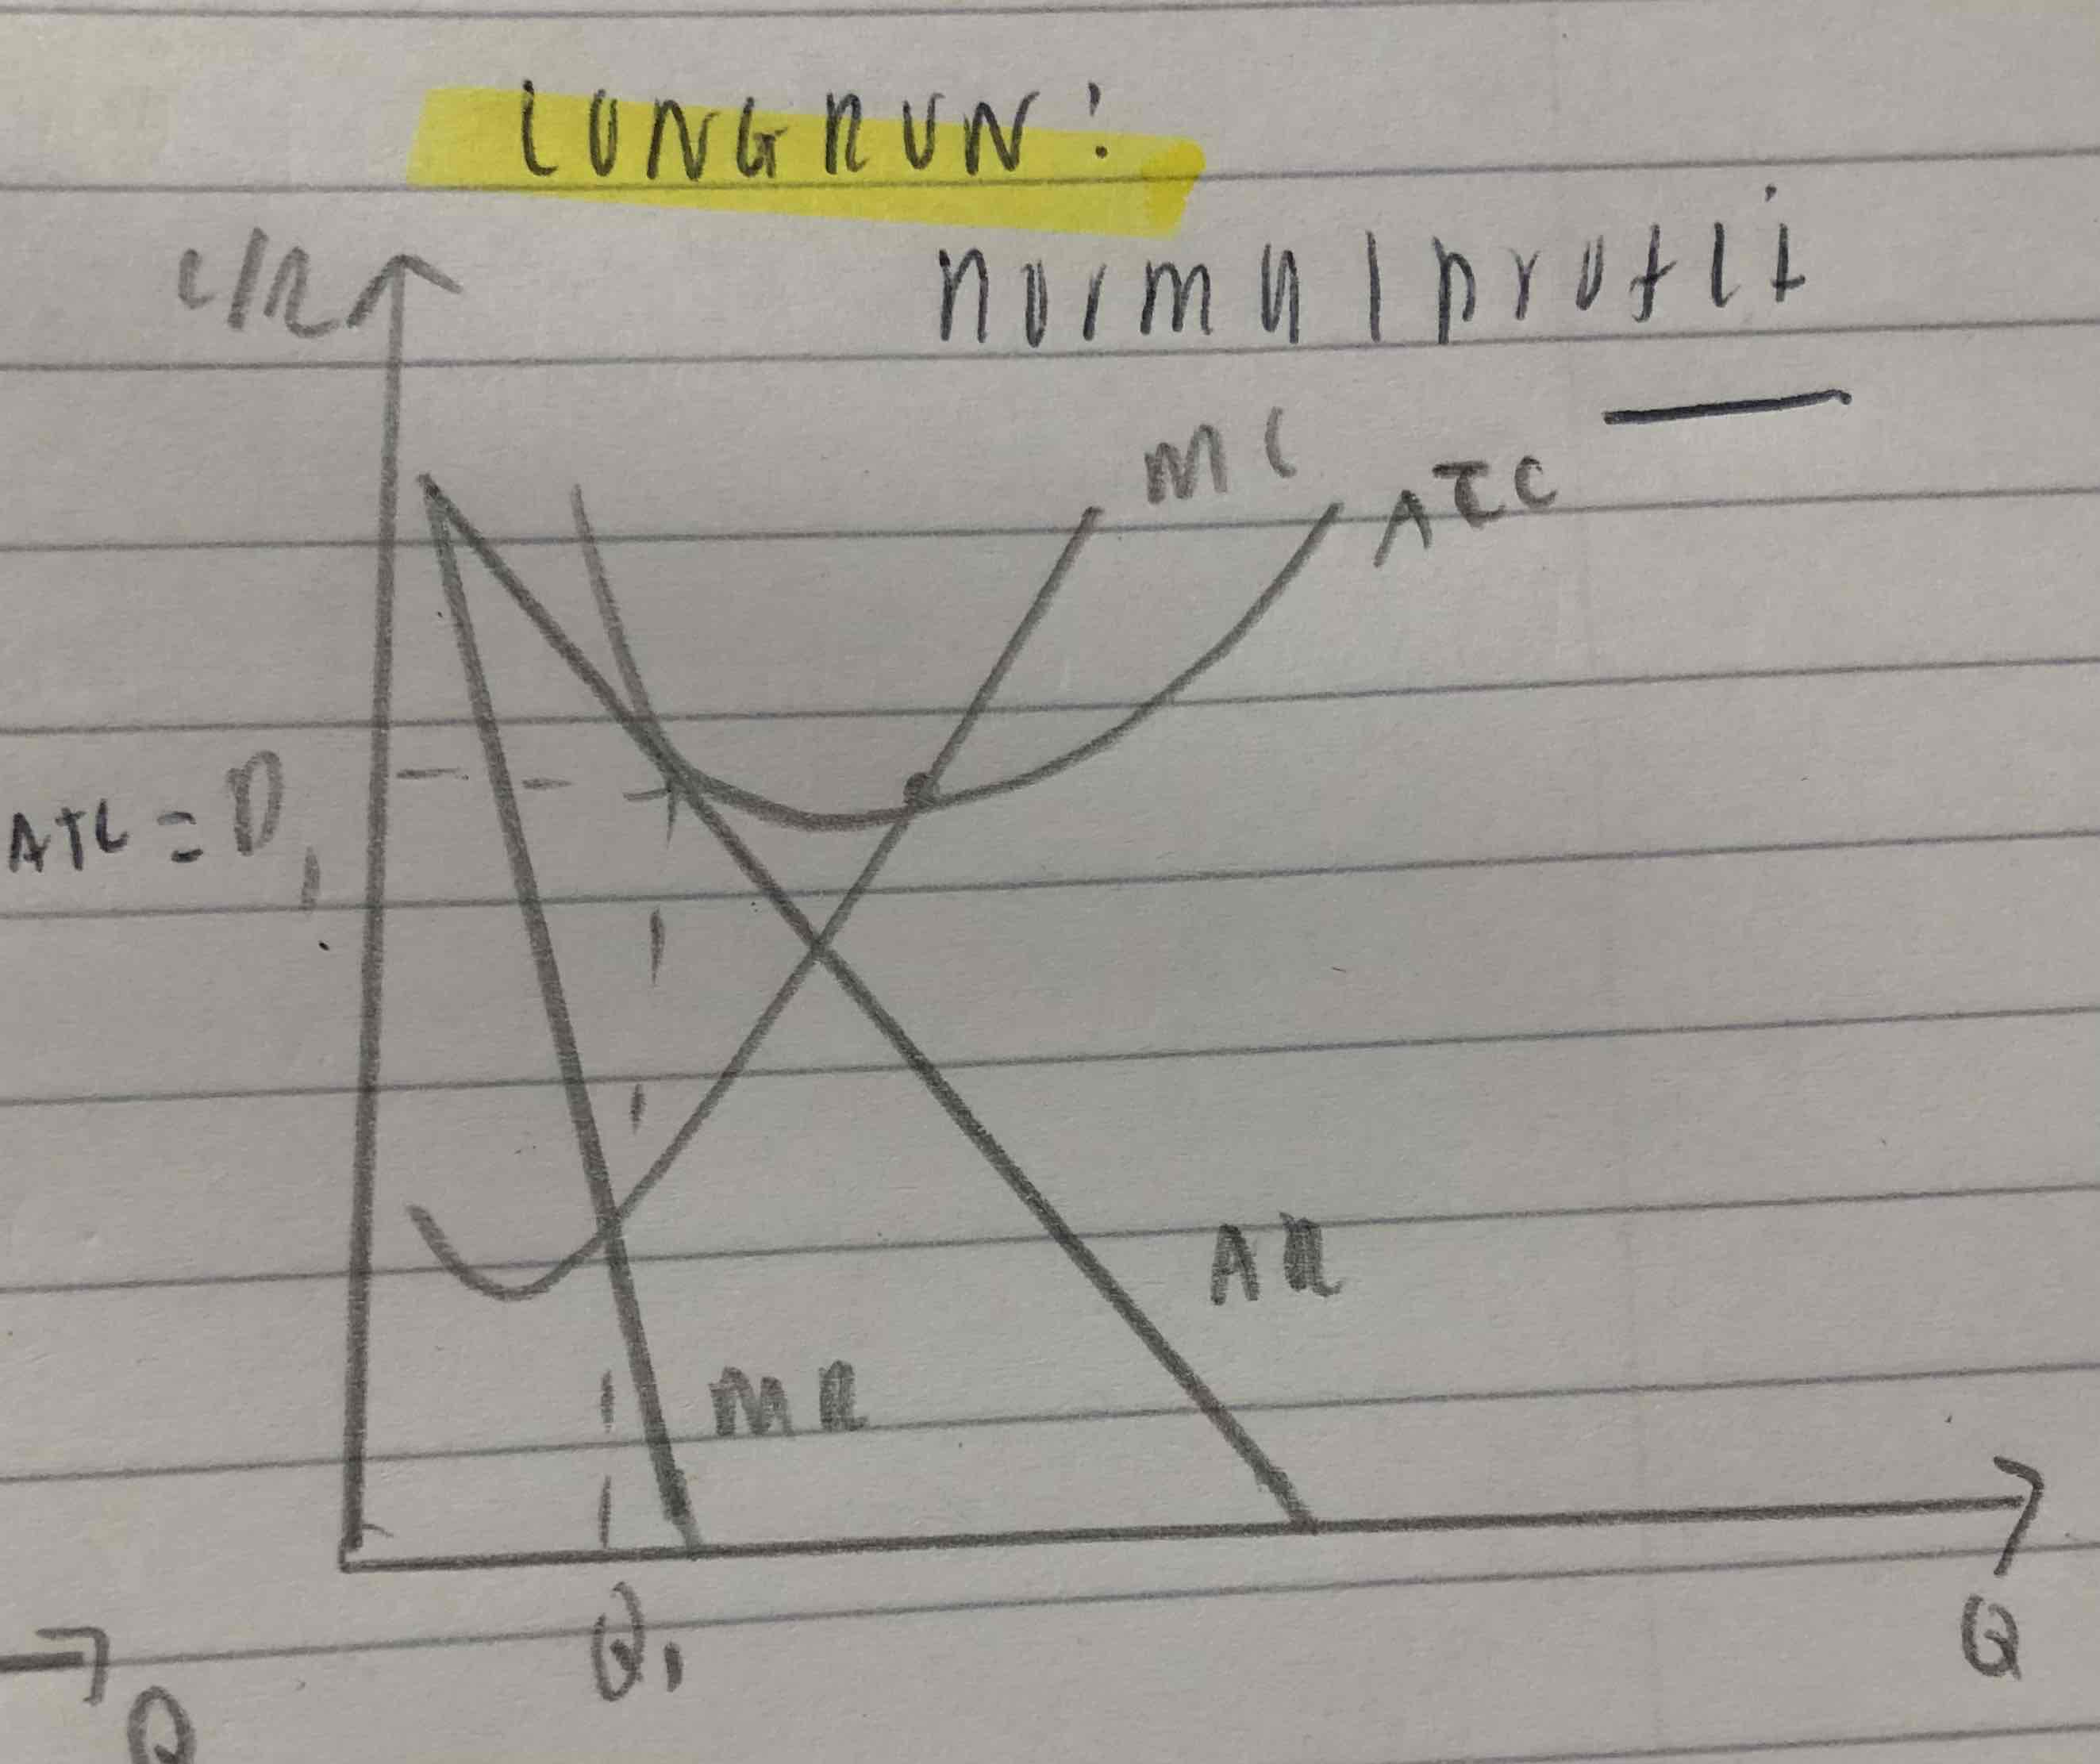 LONG RUN:
normal profit
C/R
MC
ATC
ATC = P1
AR
MR
Q1
Q
Q